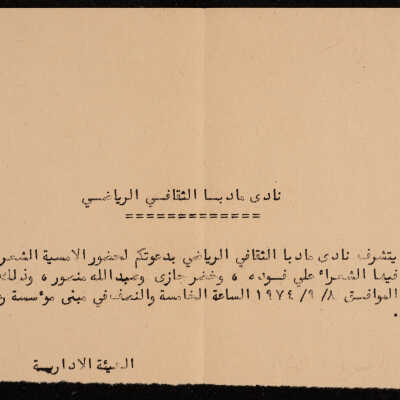 نادى مادبا الثقافي الرياضي
يتشرف نادى مادبا الثقافي الرياضي بدعوتكم لحضور الامسية الشعر
فيها الشعراء علي فوده ، وخضر جازى وعبدالله منصور ، وذلك
الموافق ٨ / ٩ / ١٩٧٤ الساعة الخامسة والنصف في مبنى مؤسسة
الهيئة الادارية